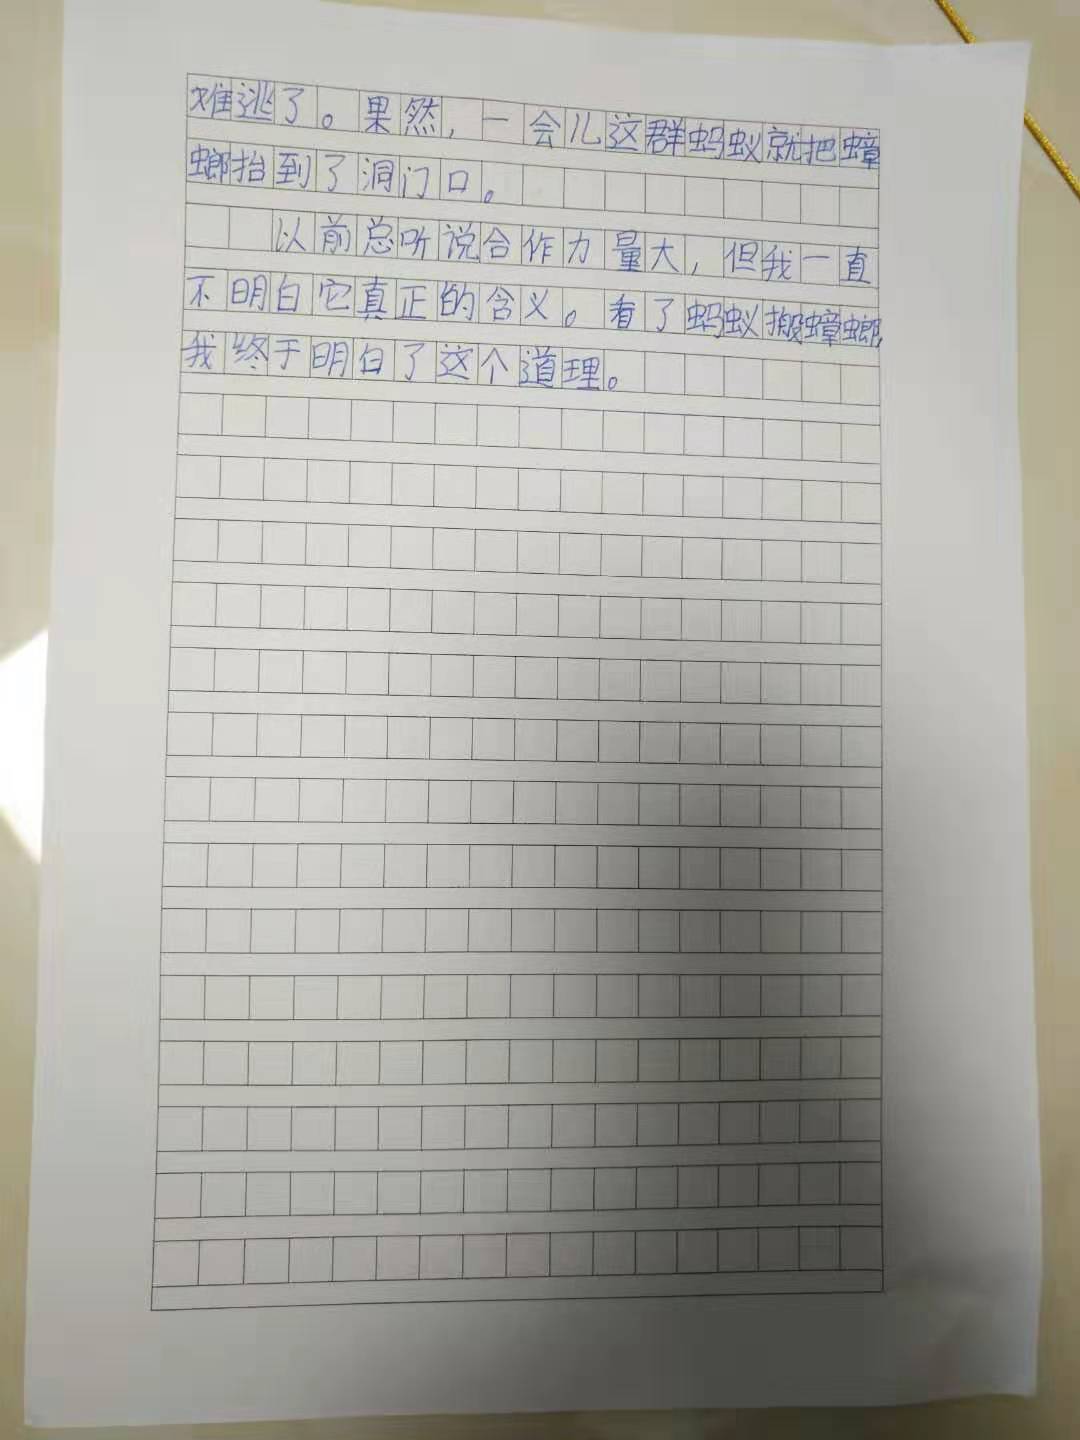 难逃了。果然，一会儿这群蚂蚁就把蟑
螂抬到了洞门口。
以前总听说合作力量大，但我一直
不明白它真正的含义。看了蚂蚁搬蟑螂，
我终于明白了这个道理。